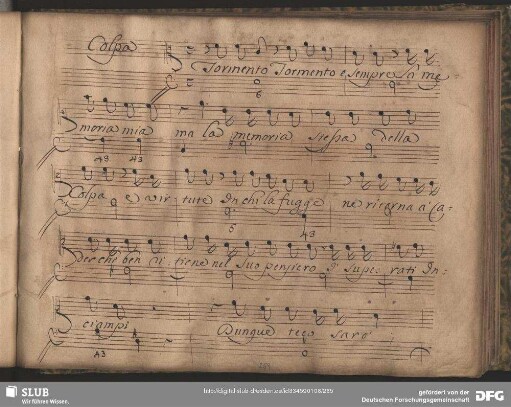 Colpa
Tormento Tormento e sempre la me-
moria mia ma la memoria stessa della
Colpa e virtute In chi la fugge ne ritorna a Ca-
der chi ben ritiene nel suo pensiero I superati In-
ciampi Dunque teco sarò
SLUB
Wir führen Wissen.
gefördert von der
Deutschen Forschungsgemeinschaft
DFG